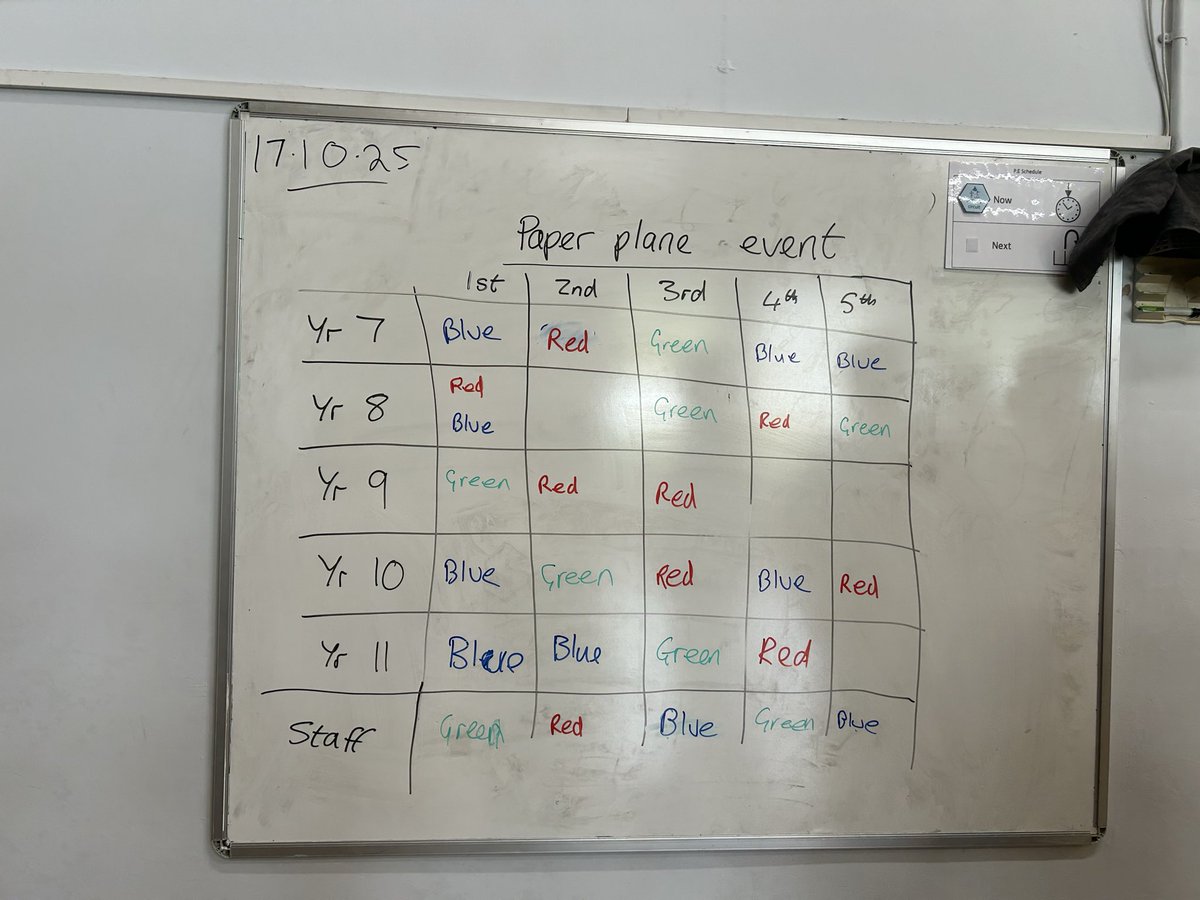 17.10.25
P.E Schedule
Now
Next
Paper plane event
1st 2nd 3rd 4th 5th
Yr 7 Blue Red Green Blue Blue
Yr 8 Red Blue Green Red Green
Yr 9 Green Red Red
Yr 10 Blue Green Red Blue Red
Yr 11 Blue Blue Green Red
Staff Green Red Blue Green Blue